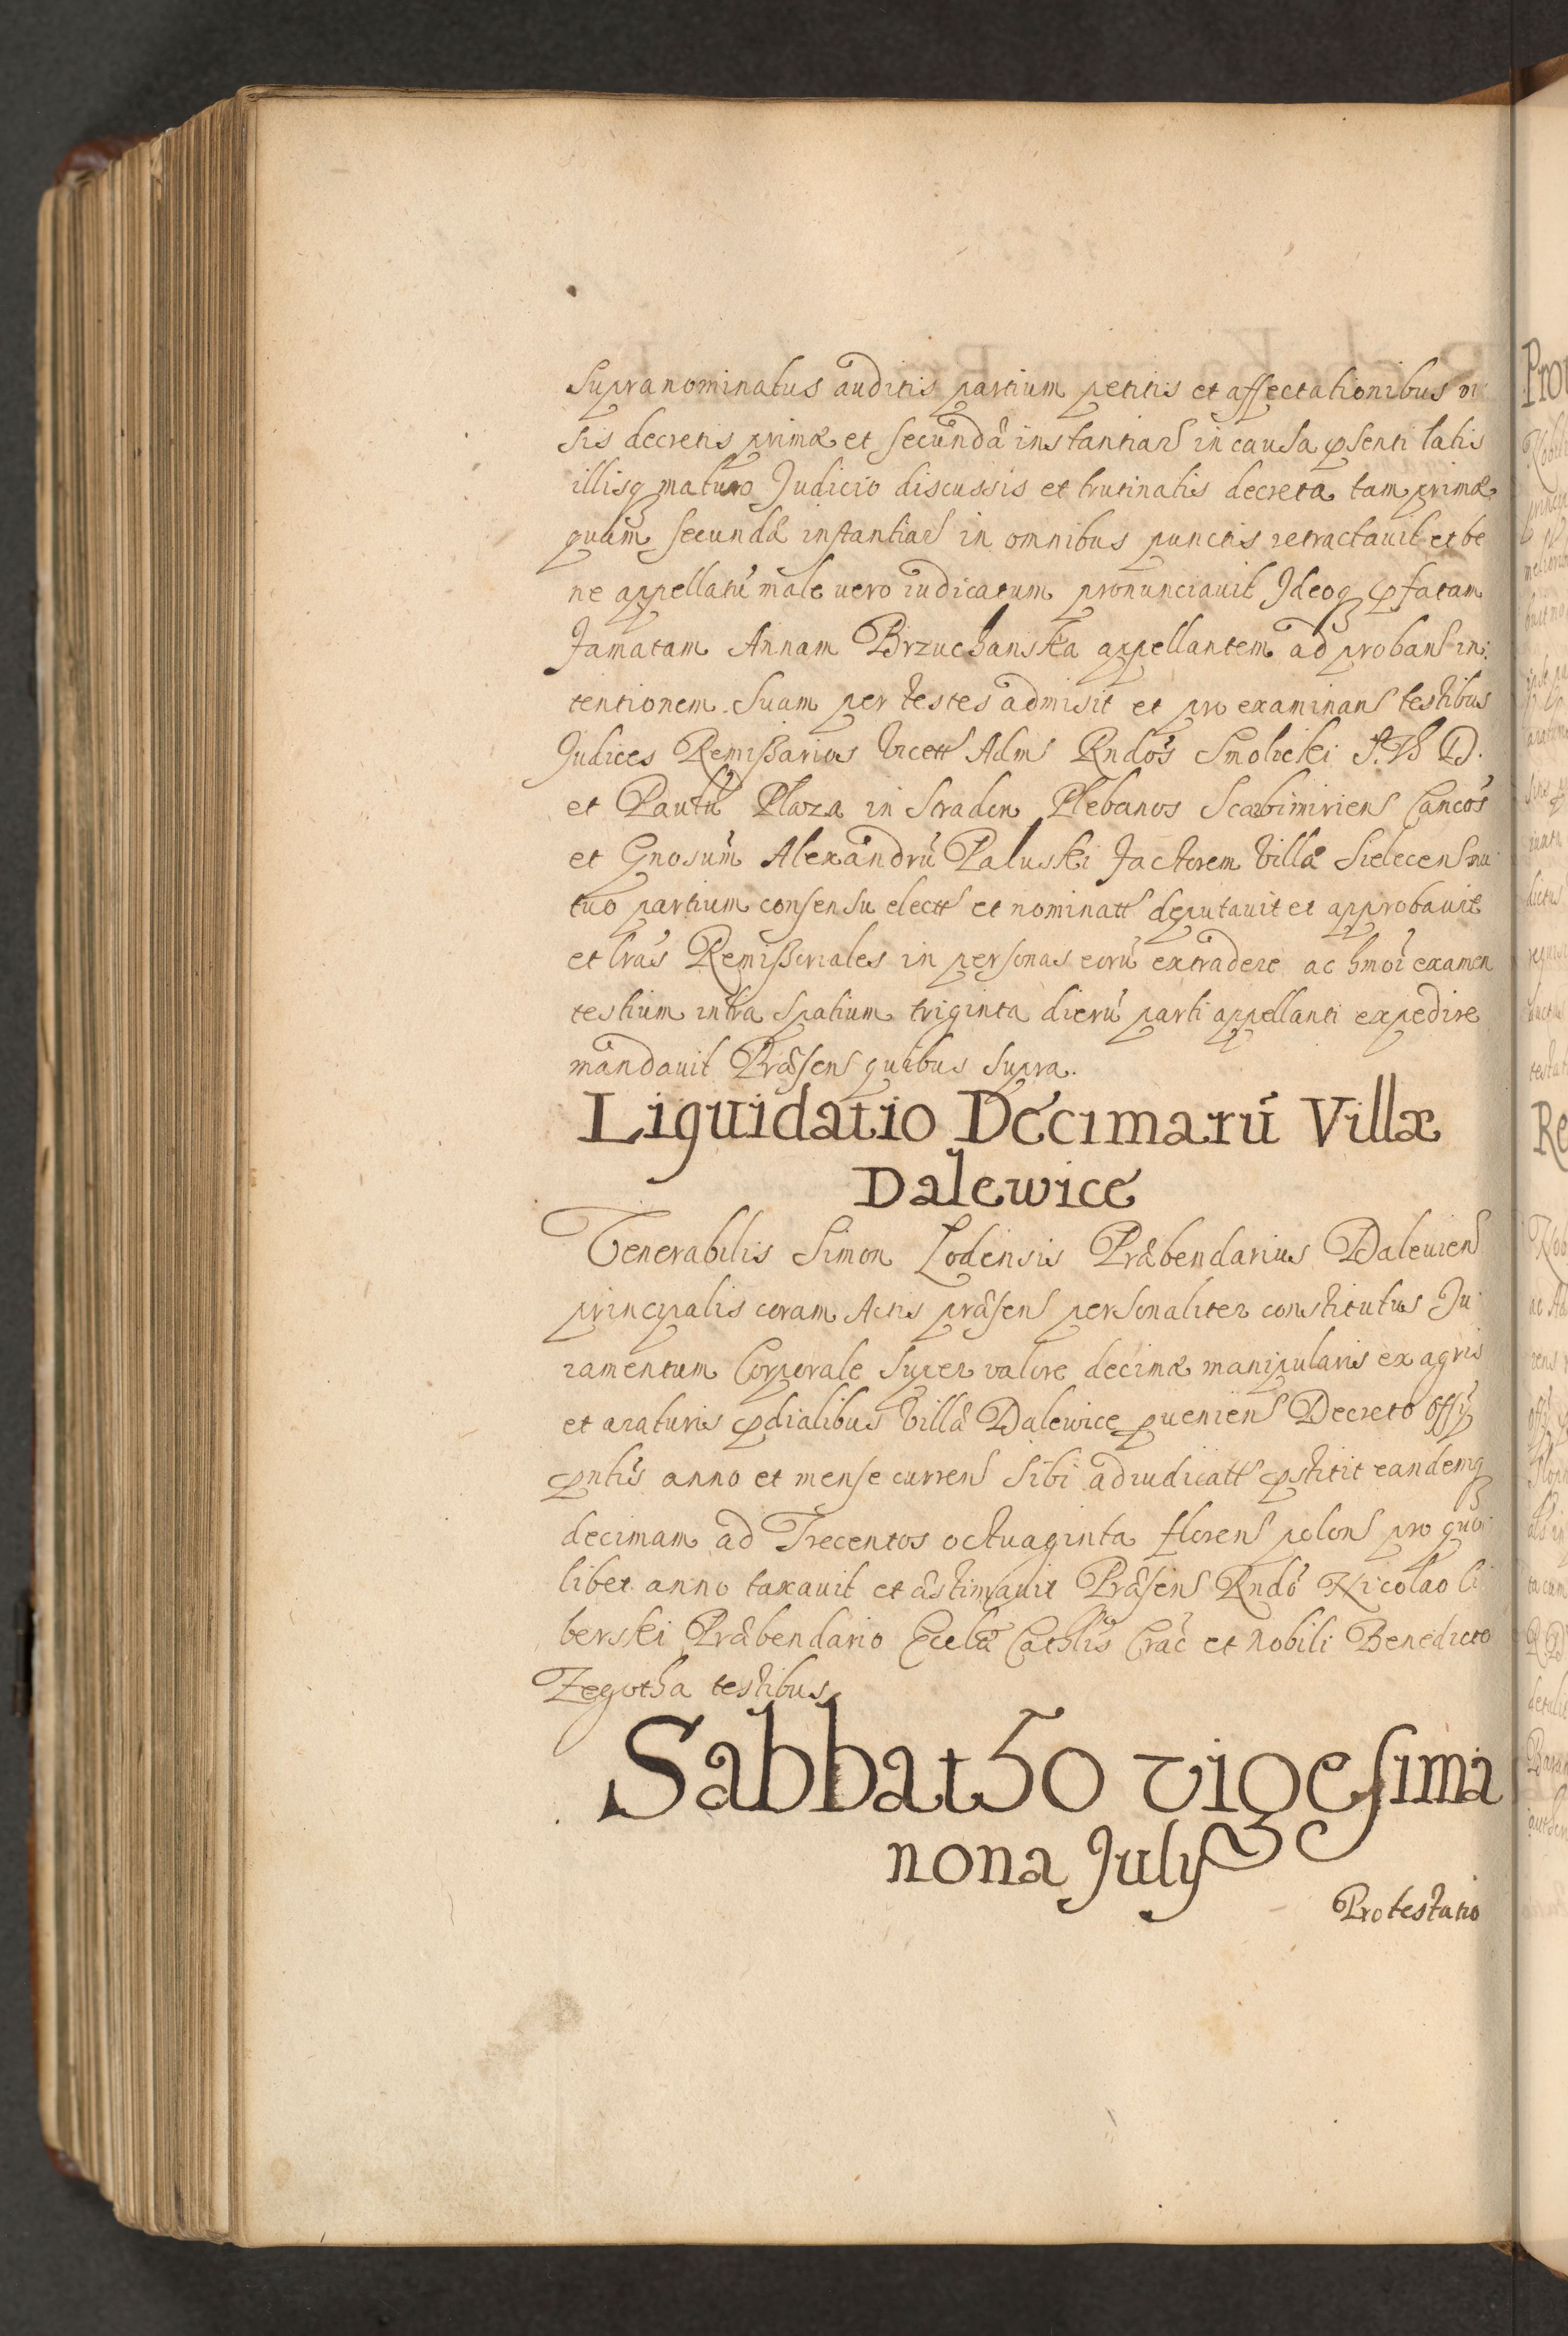 Supranominatus auditis partium petitis et affectationibus
sis decretis primæ et secundæ instantiars in causa psenti latis
illisq maturo Judicio discussis et trutinatis decreta tam primæ
quam secundæ instantiars in omnibus punctis retractauit et be
ne appellatū male uero iudicatum pronunciauit Ideoq pfatam
famatam Annam Brzuchanska appellantem ad probans in:
tentionem suam per testes admisit et pro examinans testibus
Judices Remissarios Vicett Adm Rndos Smolicki
et Paulū Plaza in Scraden Plebanos Scabimiriens Cancos
et Gnosum Alexandrū Paluski factorem Villæ Sielecens mu
tuo partium consensu electt et nominatt deputauit et approbauit
et lras Remissoriales in personas eorū extradere ac hmoi examen
testium intra spatium triginta dierū parti appellanti expedire
mandauit Præsens quibus supra.
Liquidatio Decimarū Villæ
Dalewice
Venerabilis Simon Lodensis Præbendarius Daleuiens
principalis coram Actis præsens personaliter constitutus Ju
ramentum Corporale super valore decimæ manipularis ex agris
et araturis pdialibus Villæ Dalewice pueniens Decreto offÿ
pntis anno et mense currens sibi adiudicatt pstitit eandemq
decimam ad Trecentos octuaginta florens polons pro quo
libet anno taxauit et æstimauit Præsens Rndo Nicolao Li
berski Præbendario Ecclæ Cathlis Crac et Nobili Benedicto
Zegotha testibus
Sabbatho vigesima
nona July
Protestatio